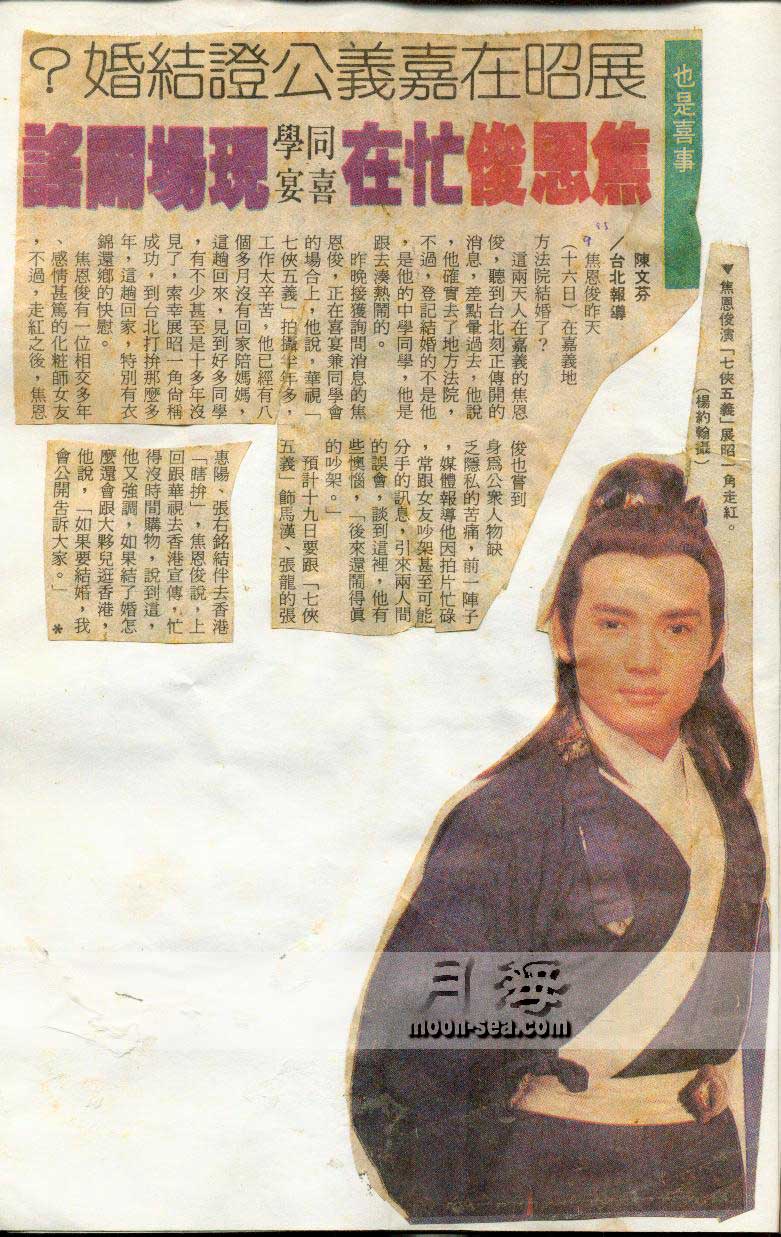 也是喜事
展昭在嘉義公證結婚？
焦恩俊忙在同學喜宴現場闢謠
陳文芬
／台北報導
焦恩俊昨天
（十六日）在嘉義地
方法院結婚了？
這兩天人在嘉義的焦恩
俊，聽到台北刻正傳開的
消息，差點暈過去，他說
，他確實去了地方法院，
不過，登記結婚的不是他
，是他的中學同學，他是
跟去湊熱鬧的。
昨晚接獲詢問消息的焦
恩俊，正在喜宴兼同學會
的場合上，他說，華視「
七俠五義」拍攝半年多，
工作太辛苦，他已經有八
個多月沒有回家陪媽媽，
這趟回來，見到好多同學
，有不少甚至是十多年沒
見了，索幸展昭一角尚稱
成功，到台北打拚那麼多
年，這趟回家，特別有衣
錦還鄉的快慰。
焦恩俊有一位相交多年
、感情甚篤的化粧師女友
，不過，走紅之後，焦恩
俊也嘗到
身為公眾人物缺
乏隱私的苦痛，前一陣子
，媒體報導他因拍片忙碌
，常跟女友吵架甚至可能
分手的訊息，引來兩人間
的誤會，談到這裡，他有
些懊惱，「後來還鬧得真
的吵架。」
預計十九日要跟「七俠
五義」飾馬漢、張龍的張
惠陽、張右銘結伴去香港
「瞎拚」，焦恩俊說，上
回跟華視去香港宣傳，忙
得沒時間購物，說到這，
他又強調，如果結了婚怎
麼還會跟大夥兒逛香港，
他說，「如果要結婚，我
會公開告訴大家。」 *
▼焦恩俊演「七俠五義」展昭一角走紅。
（楊約翰攝）
月海
moon-sea.com